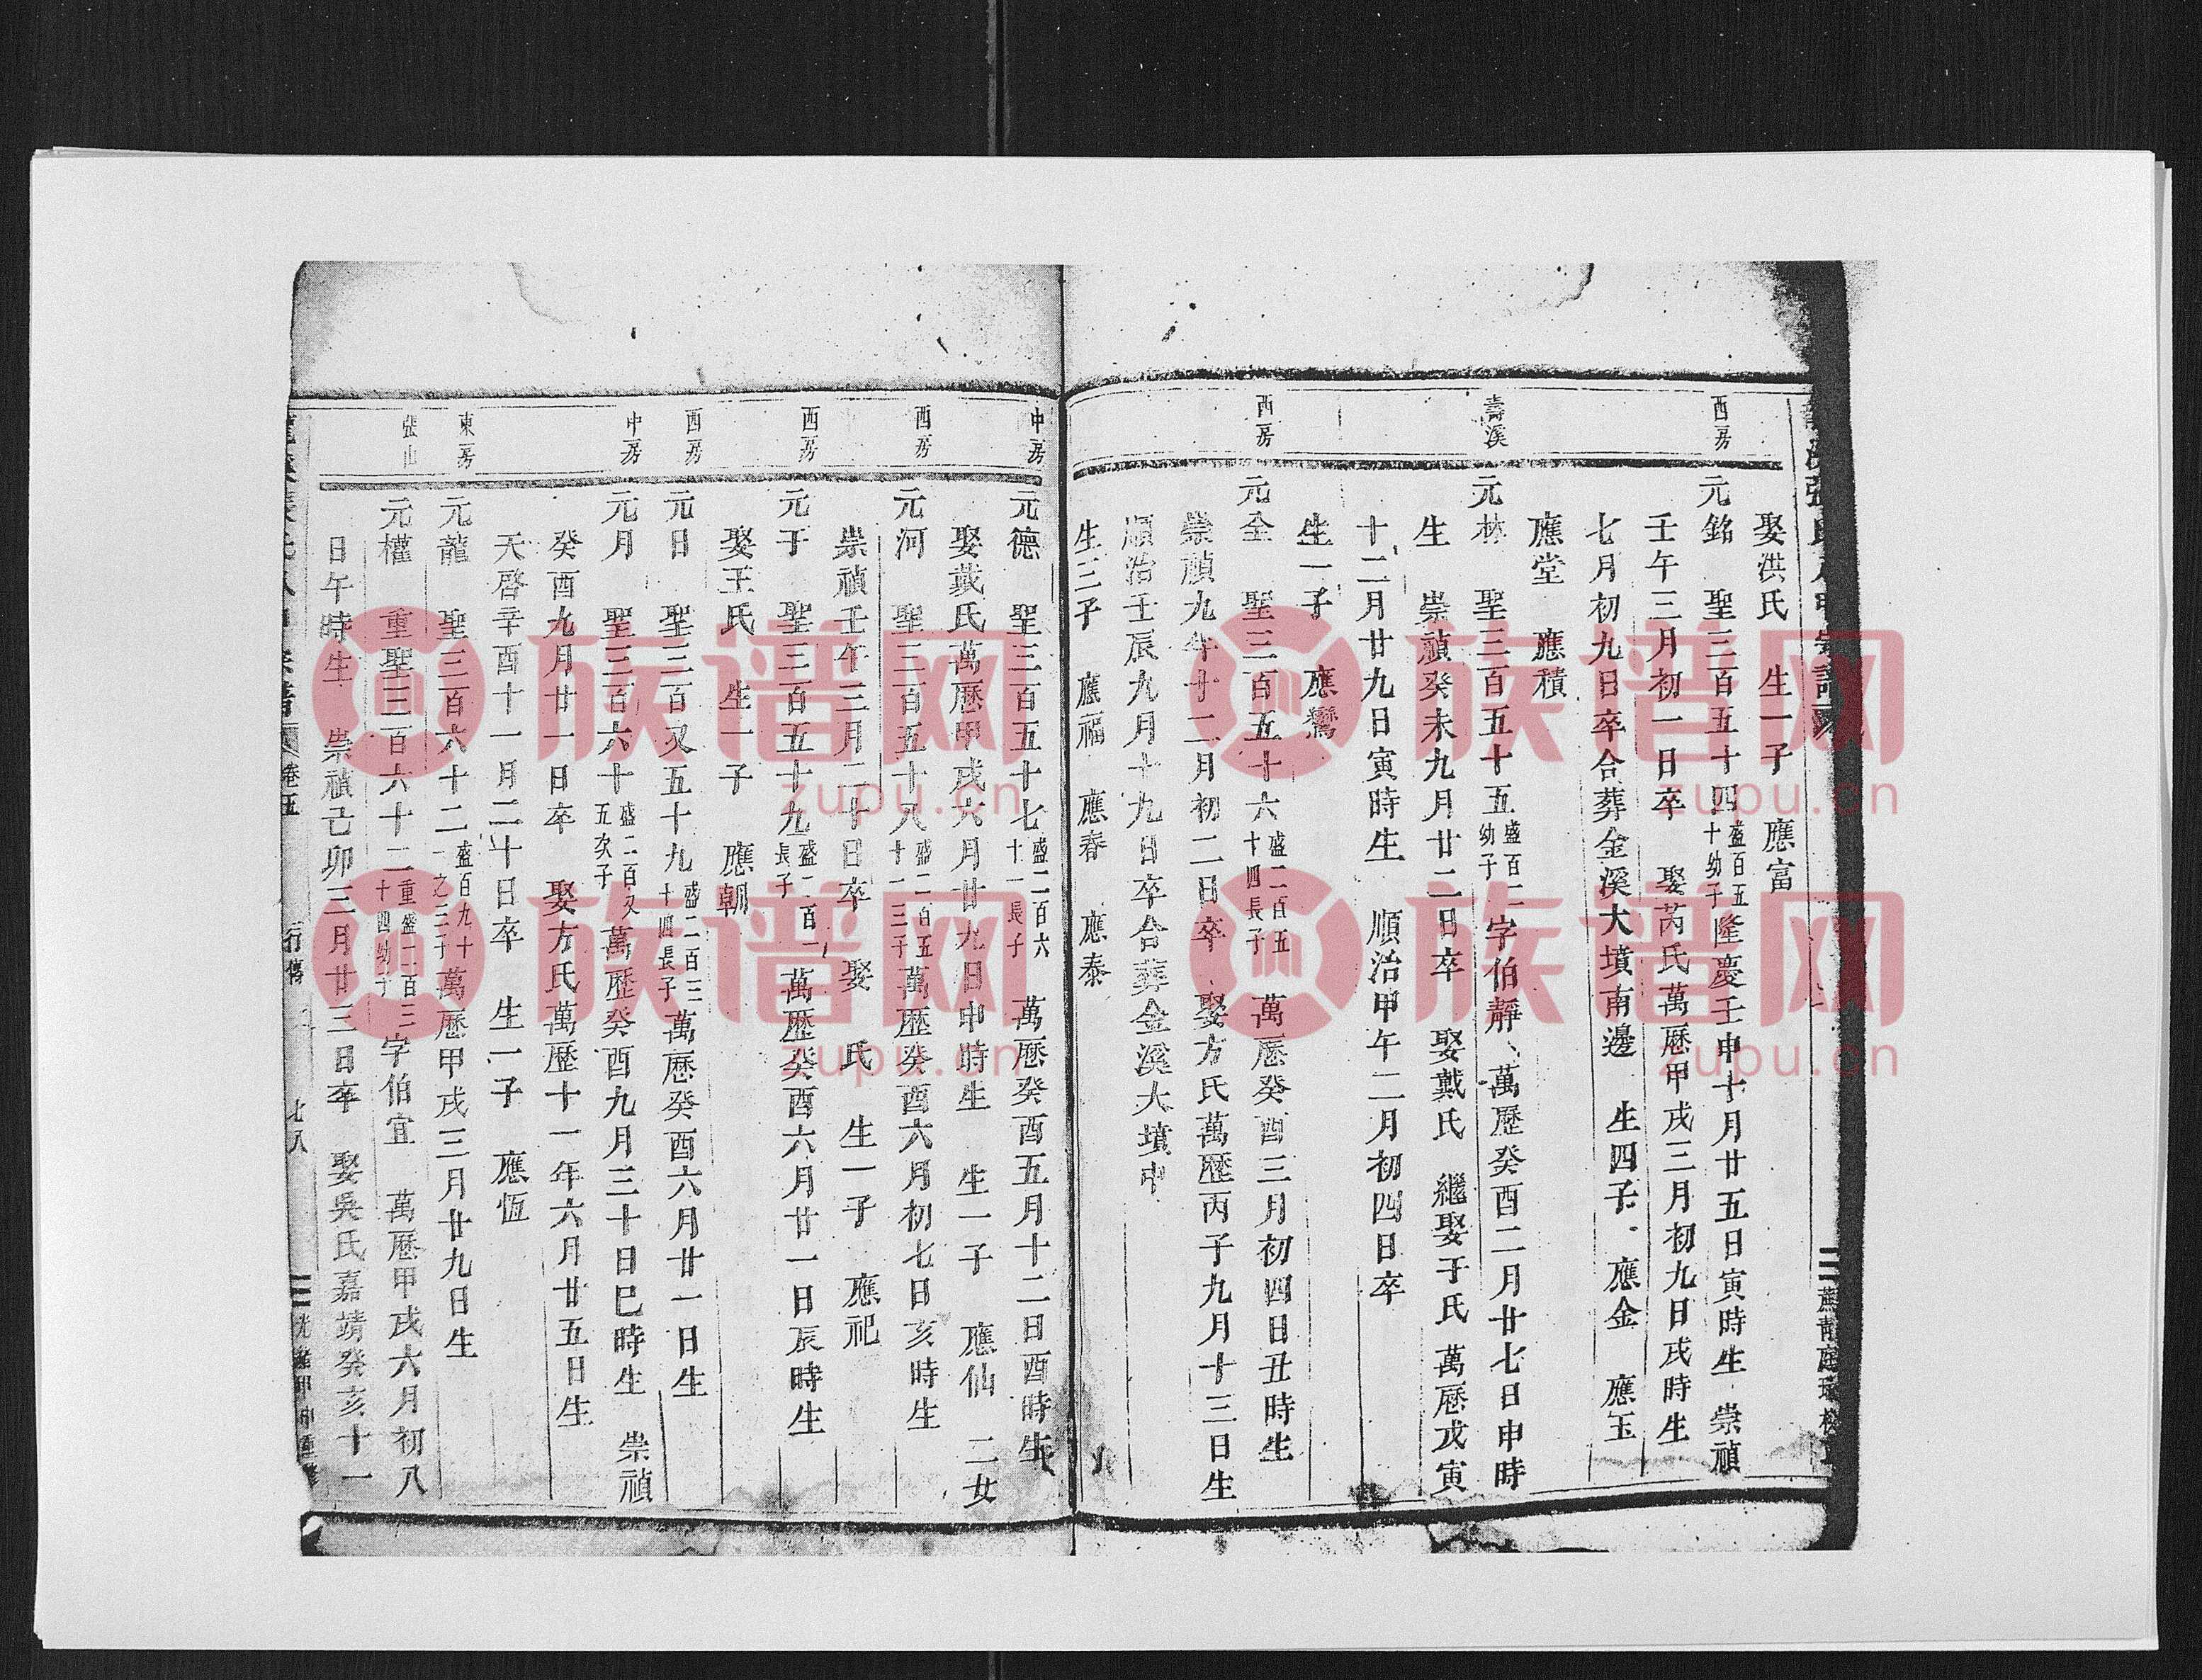 西房
壽溪
西房
娶洪氏　生一子　應富
元銘　聖三百五十四盛百五十幼子隆慶壬申十月廿五日寅時生　崇禎
壬午三月初一日卒　娶芮氏萬歷甲戌三月初九日戌時生
七月初九日卒合葬金溪大墳南邊　生四子　應金　應玉
應堂　應積
元林　聖三百五十五盛百二幼子字伯靜　萬歷癸酉二月廿七日申時
生　崇禎癸未九月廿二日卒　娶戴氏　繼娶于氏　萬歷戊寅
十二月廿九日寅時生　順治甲午二月初四日卒
生一子　應鸞
元全　聖三百五十六盛二百五十四長子　萬歷癸酉三月初四日丑時生
崇禎九年十二月初二日卒　娶方氏萬歷丙子九月十三日生
順治壬辰九月十九日卒合葬金溪大墳中
生三子　應福　應春　應泰
中房
西房
西房
西房
中房
東房
張山
元德　聖三百五十七盛二百六十一長子　萬歷癸酉五月十二日酉時生
娶戴氏萬歷甲戌六月廿九日申時生　生一子　應仙　二女
元河　聖三百五十八盛二百五十一三子萬歷癸酉六月初七日亥時生
崇禎壬午三月二十日卒　娶　氏　生一子　應祀
元于　聖三百五十九盛二百一長子　萬歷癸酉六月廿一日辰時生
娶王氏　生一子　應朝
元日　聖三百又五十九盛二百三十四長子萬歷癸酉六月廿一日生
元月　聖三百六十盛二百又五次子　萬歷癸酉九月三十日巳時生　崇禎
癸酉九月廿一日卒　娶方氏萬歷十一年六月廿五日生
天啓辛酉十一月二十日卒　生一子　應恆
元龍　聖三百六十二盛百九十一之三子萬歷甲戌三月廿九日生
元權　重聖三百六十二重盛二百三十四幼子　字伯宜　萬歷甲戌六月初八
日午時生　崇禎己卯三月廿三日卒　娶吳氏嘉靖癸亥十一
卷五
行傳
七八
族谱网
zupu.cn
族谱网
zupu.cn
族谱网
zupu.cn
族谱网
zupu.cn